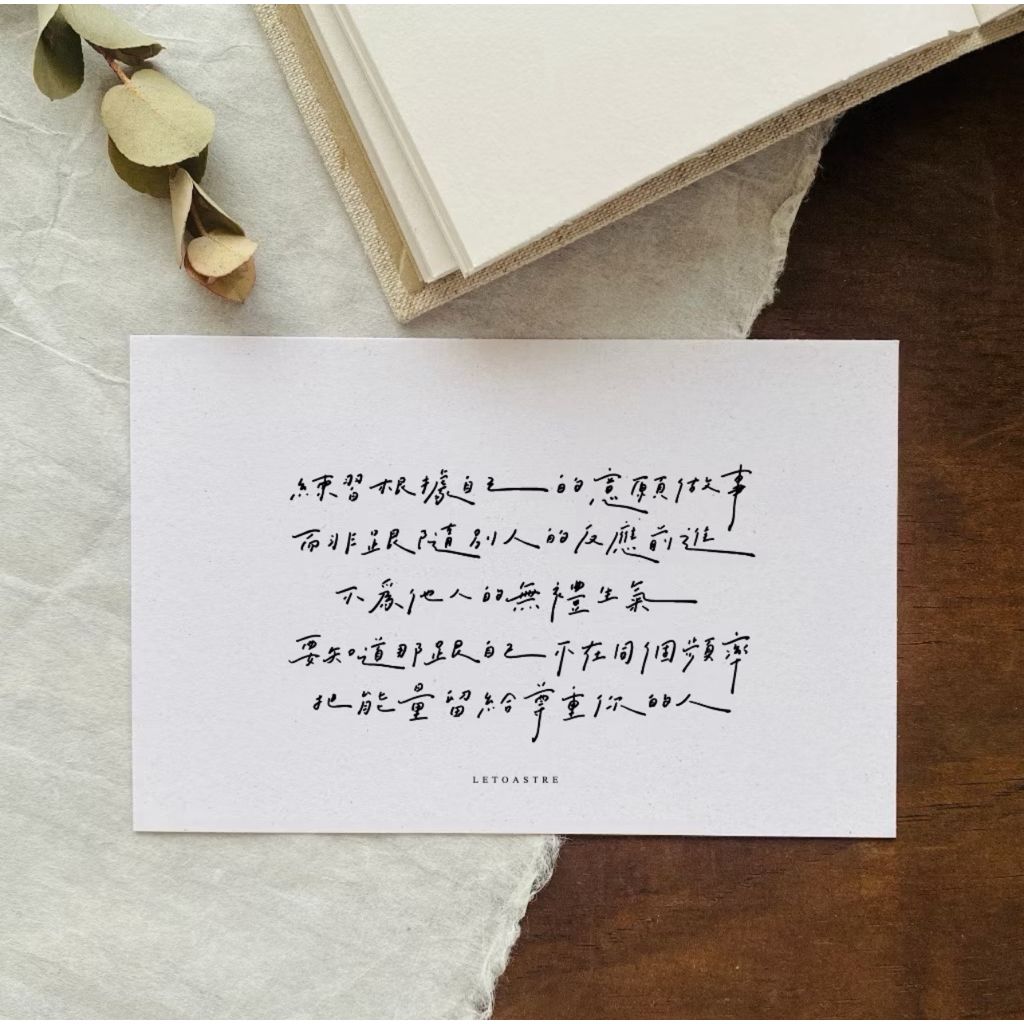 練習根據自己的意願做事
而非跟隨別人的反應前進
不為他人的無禮生氣
要知道那跟自己不在同個頻率
把能量留給尊重你的人
LETOASTRE